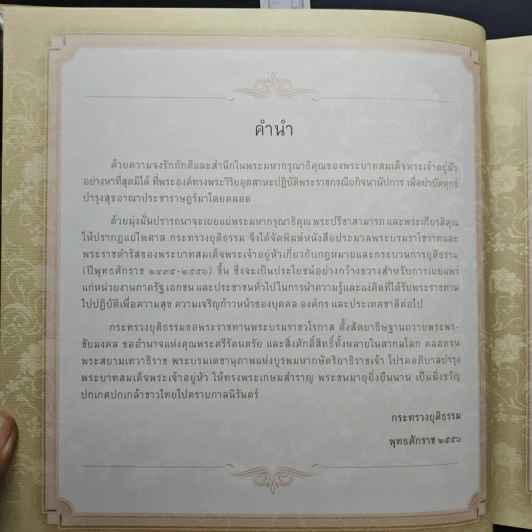 คำนำ
ด้วยความจงรักภักดีและสำนึกในพระมหากรุณาธิคุณของพระบาทสมเด็จพระเจ้าอยู่หัว
อย่างหาที่สุดมิได้ ที่พระองค์ทรงพระวิริยอุตสาหะปฏิบัติพระราชกรณียกิจนานัปการ เพื่อบำบัดทุกข์
บำรุงสุขอาณาประชาราษฎร์มาโดยตลอด
ด้วยมุ่งมั่นปรารถนาจะเผยแผ่พระมหากรุณาธิคุณ พระปรีชาสามารถ และพระเกียรติคุณ
ให้ปรากฏแผ่ไพศาล กระทรวงยุติธรรม จึงได้จัดพิมพ์หนังสือประมวลพระบรมราโชวาทและ
พระราชดำรัสของพระบาทสมเด็จพระเจ้าอยู่หัวเกี่ยวกับกฎหมายและกระบวนการยุติธรรม
(ปีพุทธศักราช ๒๔๙๕-๒๕๕๖) ขึ้น ซึ่งจะเป็นประโยชน์อย่างกว้างขวางสำหรับการเผยแพร่
แก่หน่วยงานภาครัฐ เอกชน และประชาชนทั่วไปในการนำความรู้และแง่คิดที่ได้รับพระราชทาน
ไปปฏิบัติเพื่อความสุข ความเจริญก้าวหน้าของบุคคล องค์กร และประเทศชาติต่อไป
กระทรวงยุติธรรมขอพระราชทานพระบรมราชวโรกาส ตั้งสัตยาธิษฐานถวายพระพร-
ชัยมงคล ขออำนาจแห่งคุณพระศรีรัตนตรัย และสิ่งศักดิ์สิทธิ์ทั้งหลายในสากลโลก ตลอดจน
พระสยามเทวาธิราช พระบรมเดชานุภาพแห่งบูรพมหากษัตริยาธิราชเจ้า โปรดอภิบาลบำรุง
พระบาทสมเด็จพระเจ้าอยู่หัว ให้ทรงพระเกษมสำราญ พระชนมายุยิ่งยืนนาน เป็นมิ่งขวัญ
ปกเกศปกเกล้าชาวไทยไปตราบกาลนิรันดร์
กระทรวงยุติธรรม
พุทธศักราช ๒๕๕๖